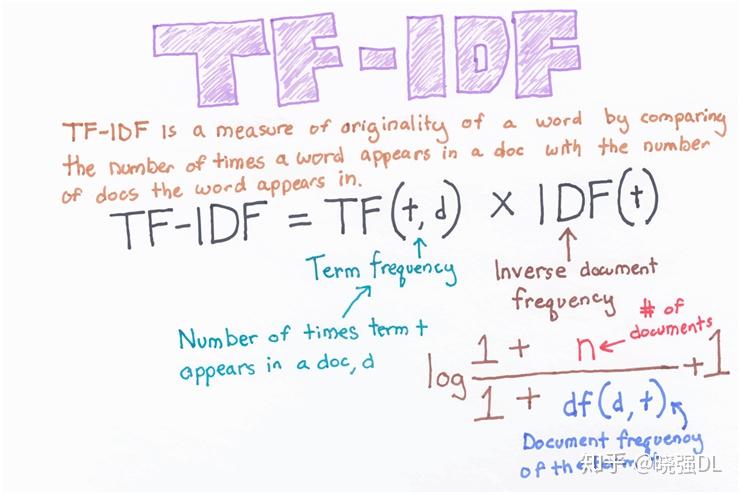 TF-IDF
TF-IDF is a measure of originality of a word by comparing
the number of times a word appears in a doc with the number
of docs the word appears in.
TF-IDF = TF(t, d) × IDF(t)
Term frequency
Inverse document
frequency
Number of times term t
appears in a doc, d
# of
documents
1 + n
log
+1
1 + df(d, t)
Document frequency
of the
知乎 @晓强DL